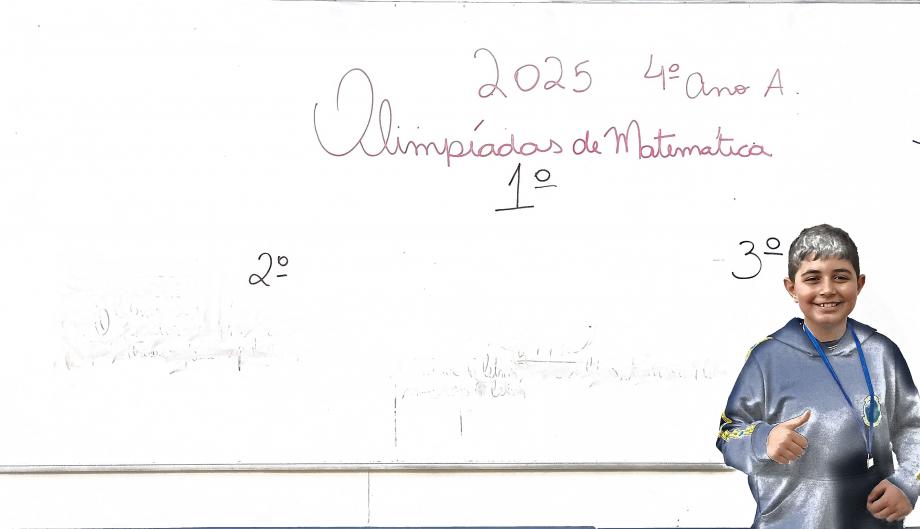 2025 4º Ano A.
Olimpíadas de Matemática
1º
2º
3º